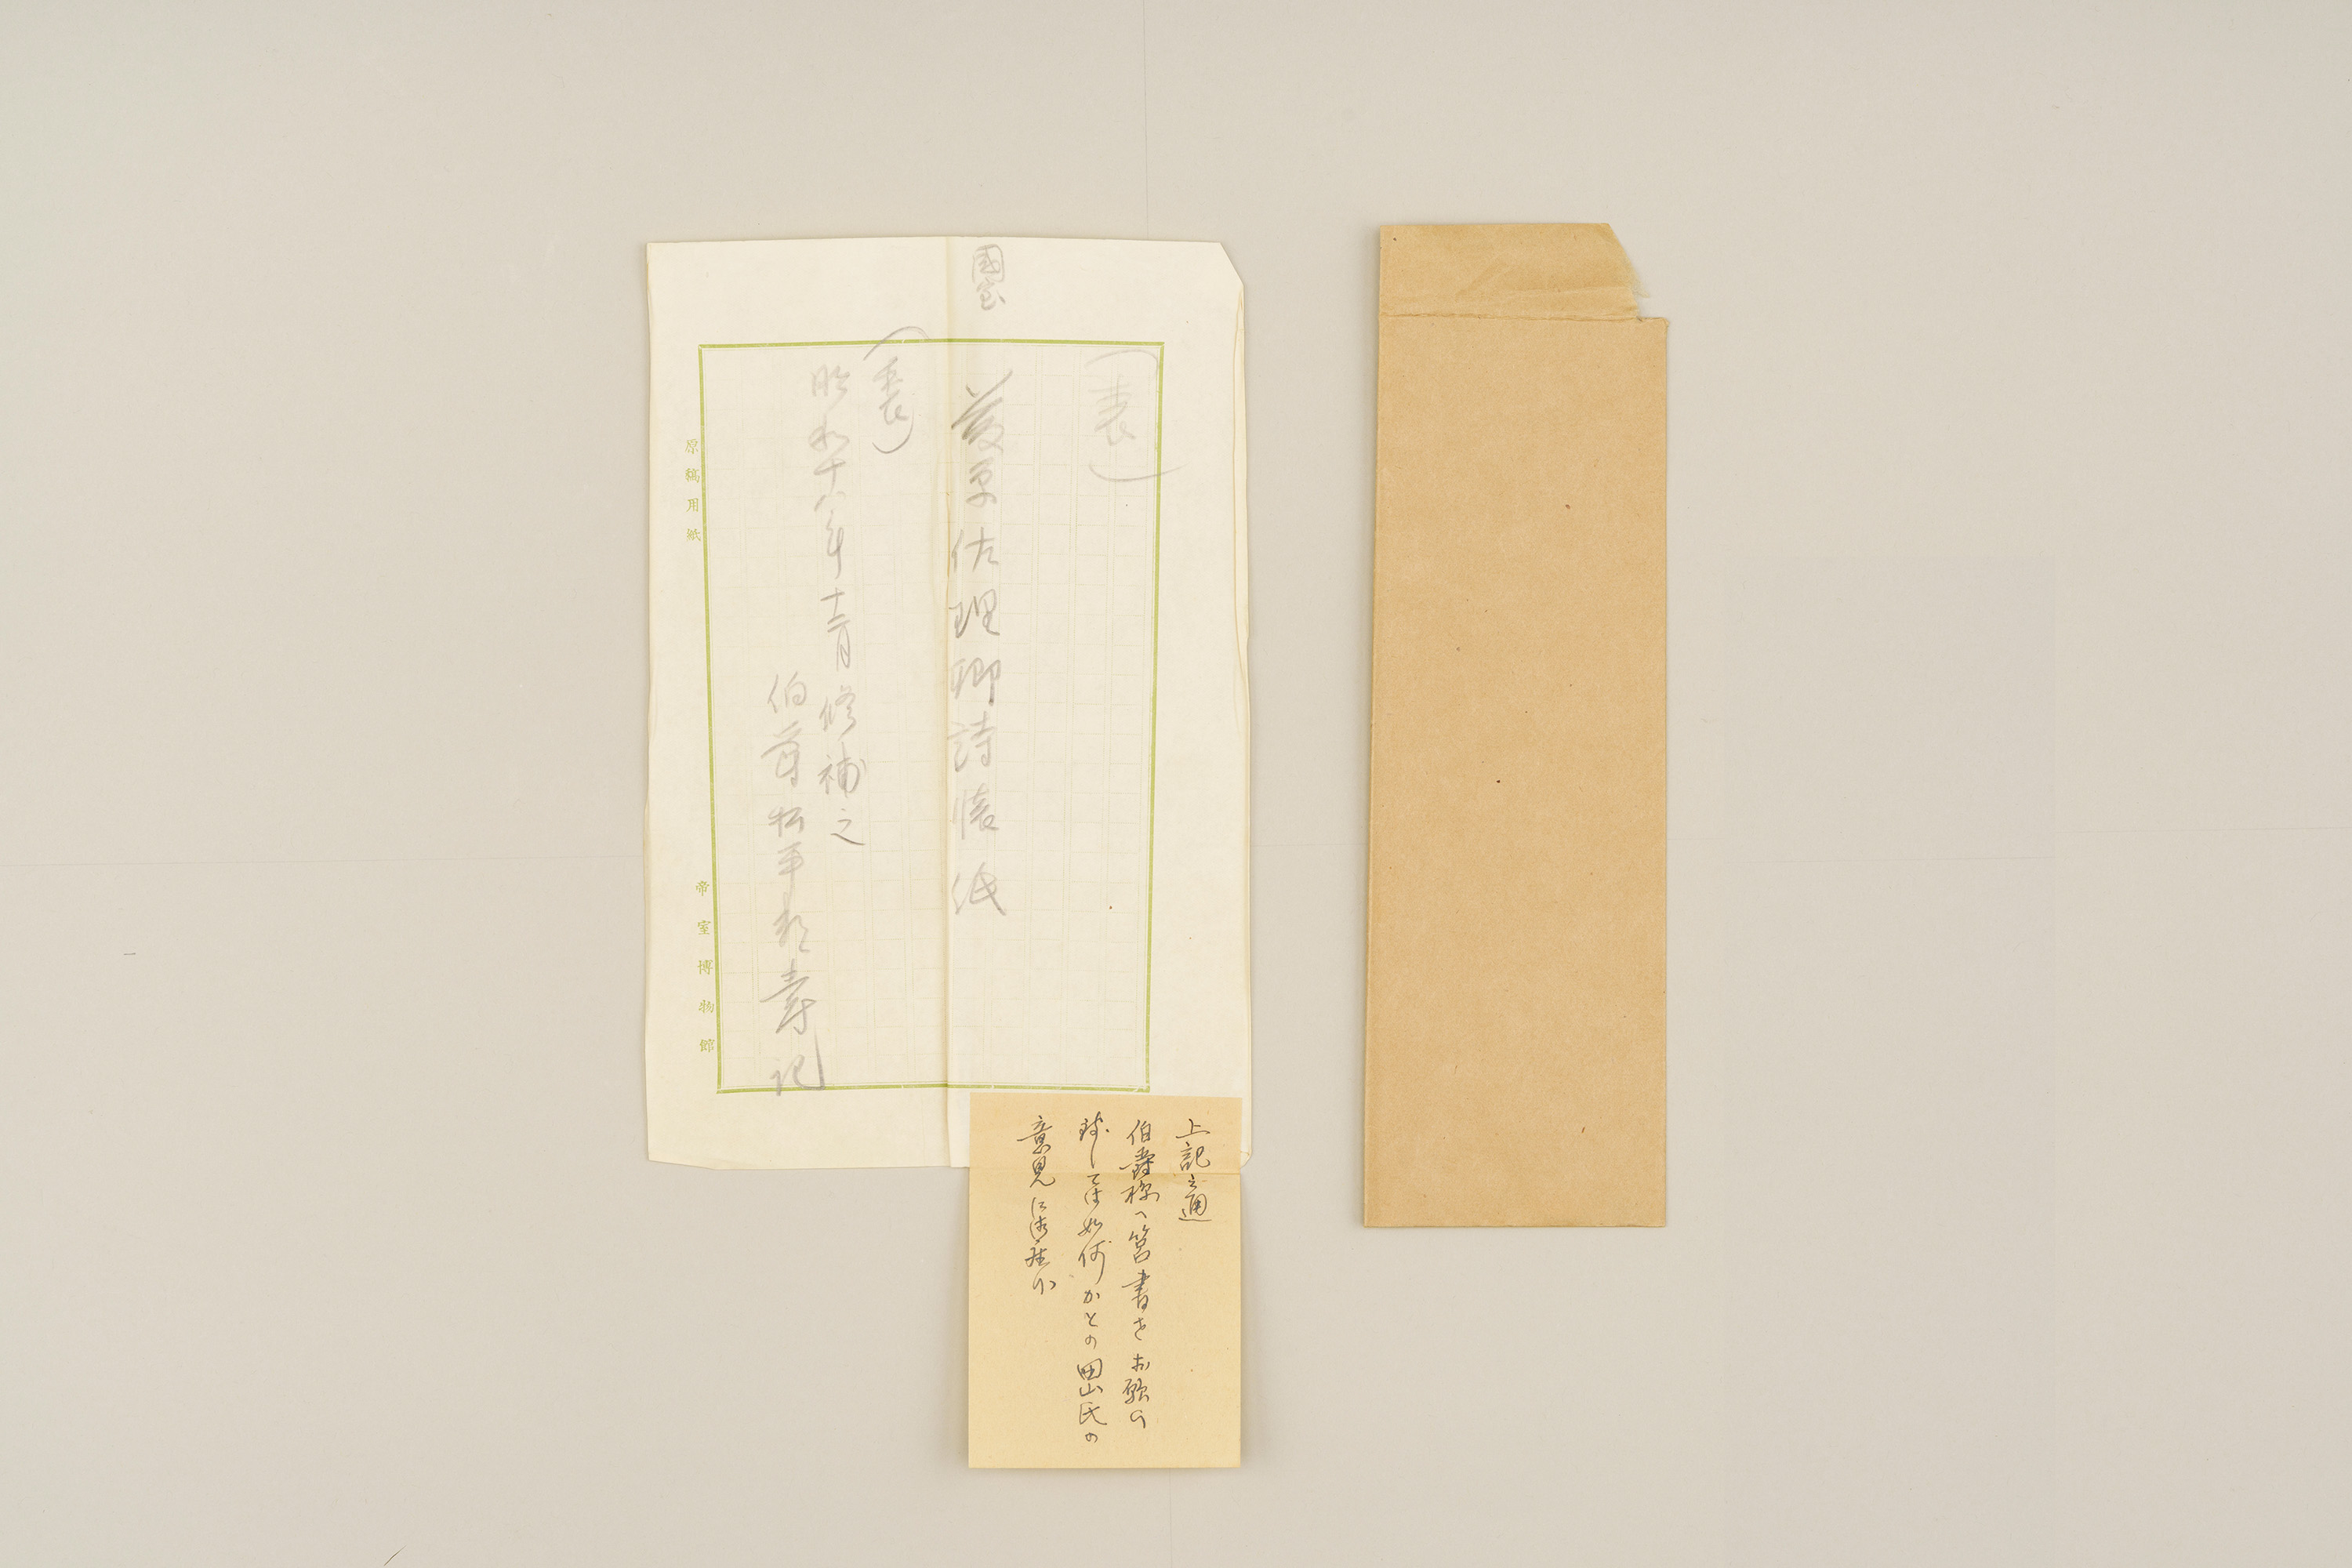 （表）
國宝
藤原佐理卿詩懐紙
（裏）
昭和十八年十二月修補之
伯爵松平頼壽記
原稿用紙
帝室博物館
上記之通
伯爵様へ筥書をお願ひ
致しては如何かとの田山氏の
意見に御座候